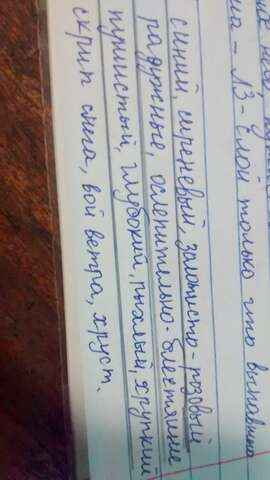 ма - 13 - слой только что выпавше
синий, сиреневый, золотисто-розовый
радужные, ослепительно-блестящие
пушистый, глубокий, талый, хрупкий
скрип снега, вой ветра, хруст.